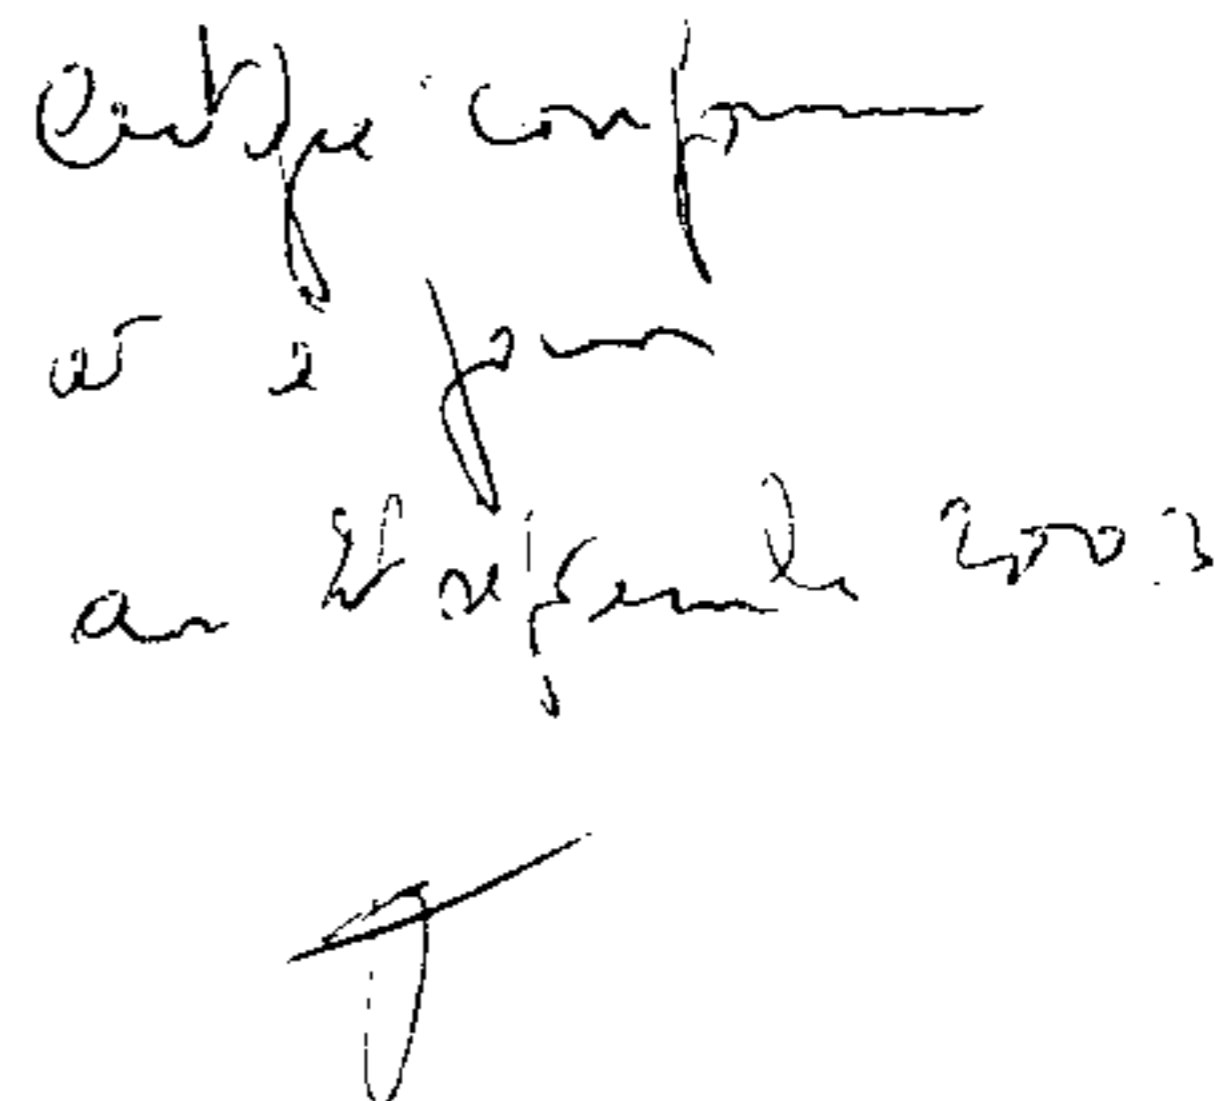 Certifié conforme
et à jour
au septembre 2003